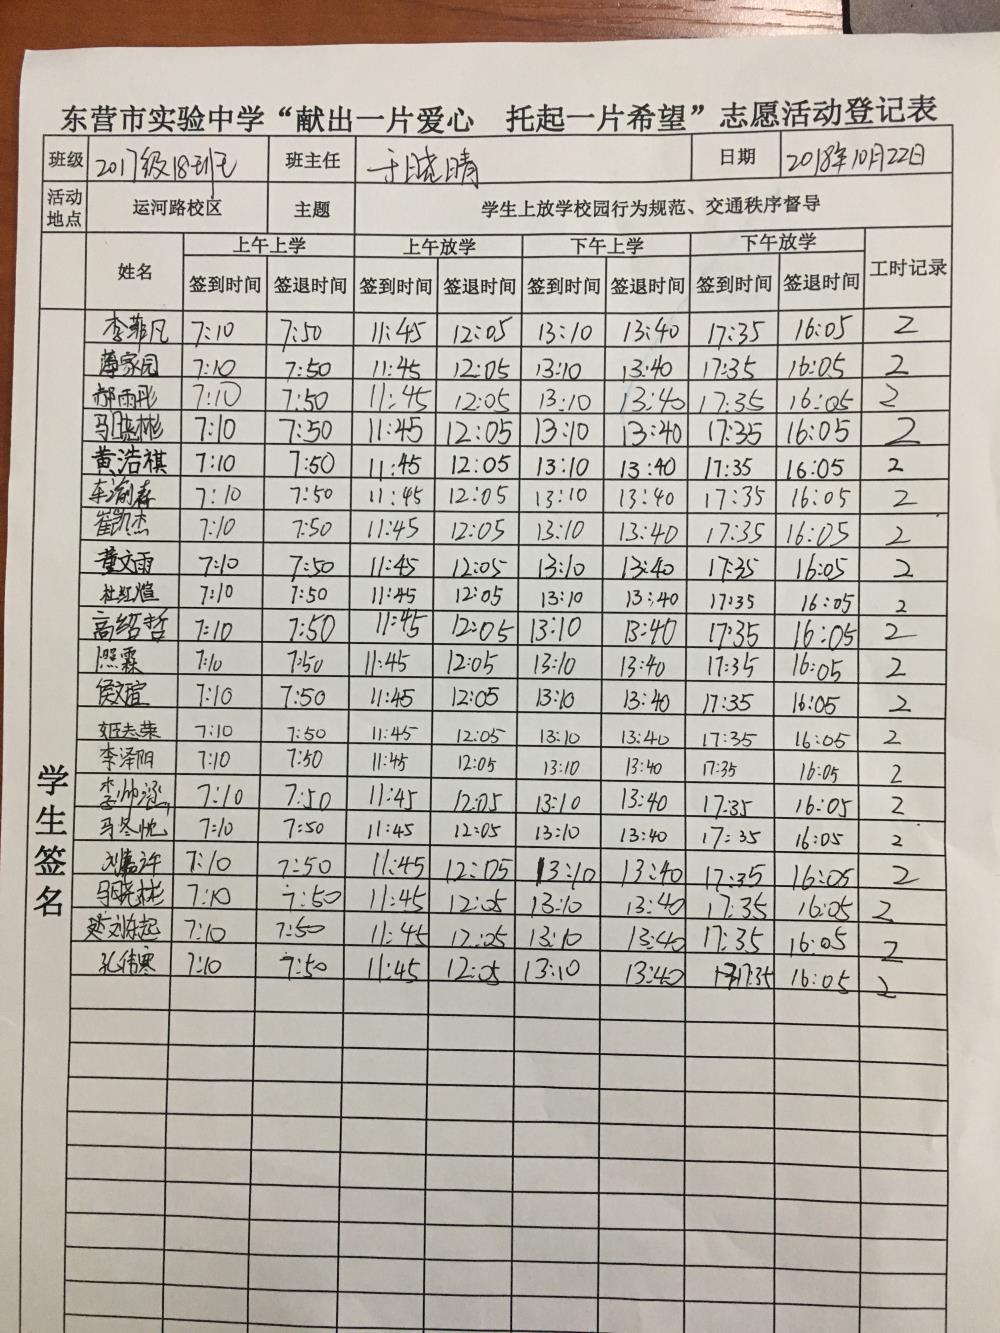 东营市实验中学“献出一片爱心 托起一片希望”志愿活动登记表
班级 2017级18班 班主任 于晓晴 日期 2018年10月22日
活动地点 运河路校区 主题 学生上放学校园行为规范、交通秩序督导
姓名 上午上学 上午放学 下午上学 下午放学 工时记录
签到时间 签退时间 签到时间 签退时间 签到时间 签退时间 签到时间 签退时间
学生签名
李菲凡 7:10 7:50 11:45 12:05 13:10 13:40 17:35 16:05 2
薄家园 7:10 7:50 11:45 12:05 13:10 13:40 17:35 16:05 2
郝雨彤 7:10 7:50 11:45 12:05 13:10 13:40 17:35 16:05 2
马晓彬 7:10 7:50 11:45 12:05 13:10 13:40 17:35 16:05 2
黄浩祺 7:10 7:50 11:45 12:05 13:10 13:40 17:35 16:05 2
7:10 7:50 11:45 12:05 13:10 13:40 17:35 16:05 2
崔凯杰 7:10 7:50 11:45 12:05 13:10 13:40 17:35 16:05 2
董文雨 7:10 7:50 11:45 12:05 13:10 13:40 17:35 16:05 2
杜红煊 7:10 7:50 11:45 12:05 13:10 13:40 17:35 16:05 2
高绍哲 7:10 7:50 11:45 12:05 13:10 13:40 17:35 16:05 2
照霖 7:10 7:50 11:45 12:05 13:10 13:40 17:35 16:05 2
侯文暄 7:10 7:50 11:45 12:05 13:10 13:40 17:35 16:05 2
姬志荣 7:10 7:50 11:45 12:05 13:10 13:40 17:35 16:05 2
李泽阳 7:10 7:50 11:45 12:05 13:10 13:40 17:35 16:05 2
李帅涵 7:10 7:50 11:45 12:05 13:10 13:40 17:35 16:05 2
马冬悦 7:10 7:50 11:45 12:05 13:10 13:40 17:35 16:05 2
刘嘉许 7:10 7:50 11:45 12:05 13:10 13:40 17:35 16:05 2
马晓彬 7:10 7:50 11:45 12:05 13:10 13:40 17:35 16:05 2
赵刘东起 7:10 7:50 11:45 12:05 13:10 13:40 17:35 16:05 2
孔伟寒 7:10 7:50 11:45 12:05 13:10 13:40 17:35 16:05 2